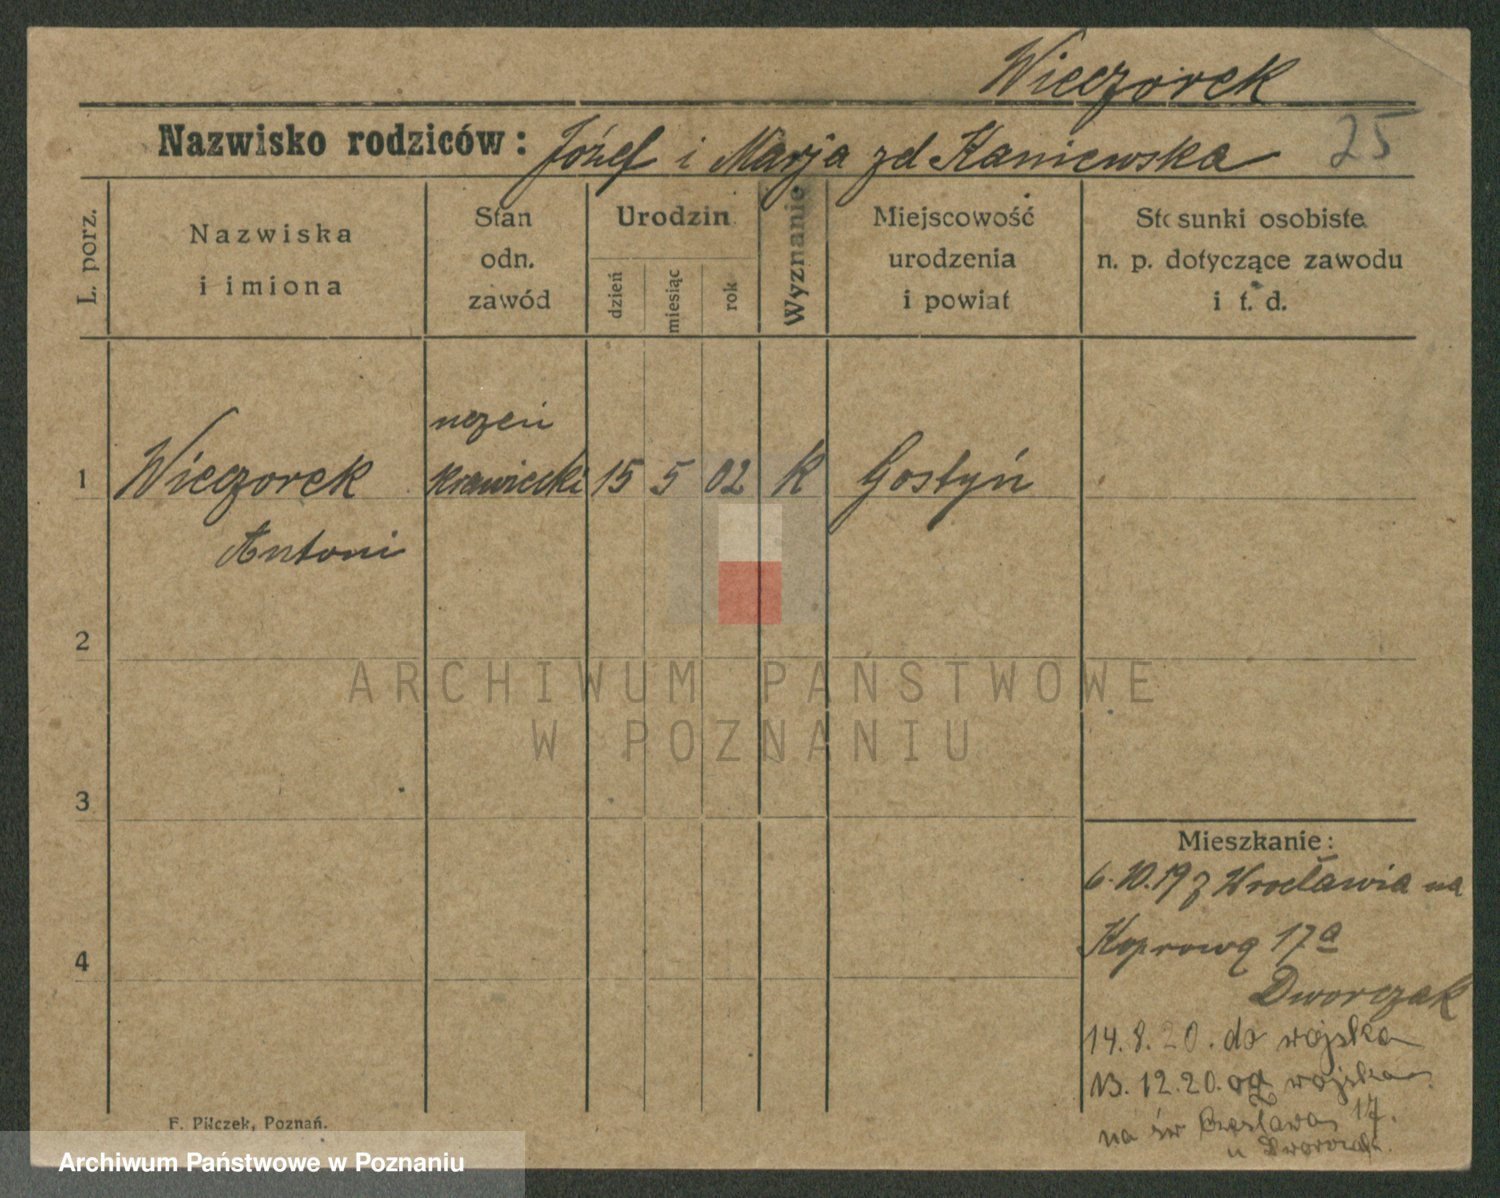 Wieczorek
Nazwisko rodziców: Józef i Marja zd Kaniewska 25
L. porz.
Nazwiska
i imiona
Stan
odn.
zawód
Urodzin
dzień
miesiąc
rok
Wyznanie
Miejscowość
urodzenia
i powiat
Stosunki osobiste
n. p. dotyczące zawodu
i t. d.
uczeń
1 Wieczorek krawiecki 15 5 02 K Gostyń
Antoni
2
ARCHIWUM PAŃSTWOWE
W POZNANIU
3
Mieszkanie:
6.10.19 z Wrocławia na
Koprową 17a
4
Dworczak
14.8.20. do wojska
13.12.20. od wojska
na św Czesława 17.
u
F. Pilczek, Poznań.
Archiwum Państwowe w Poznaniu